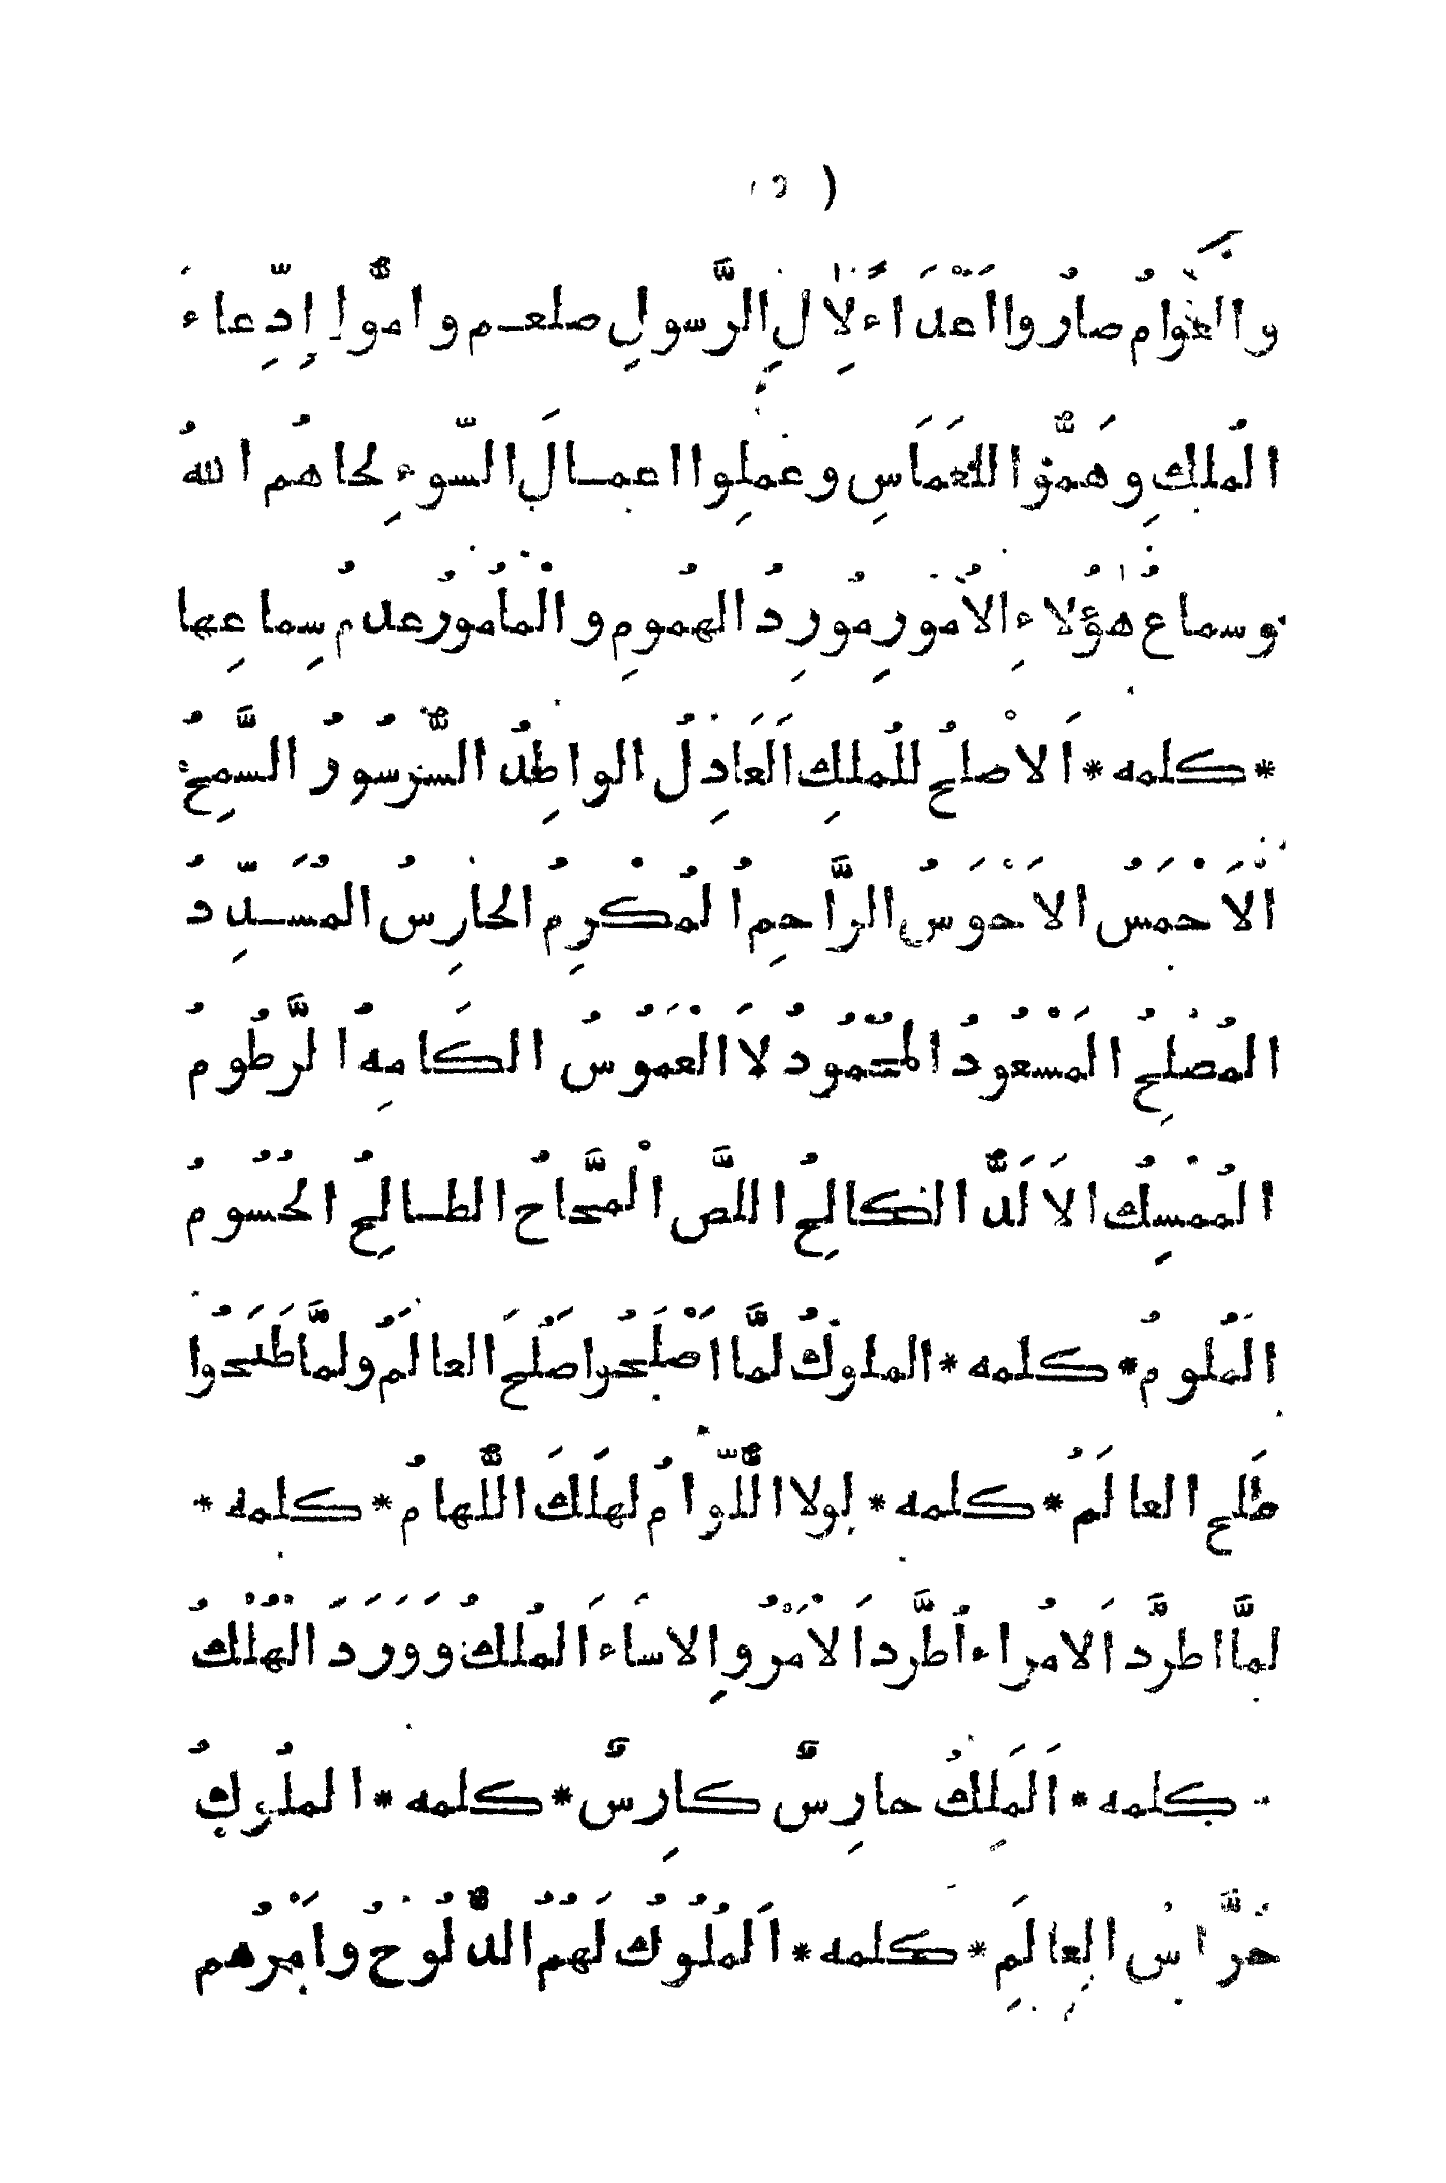 والعَوامُ صارُوا اَعْدَاءً لِاٰلِ الرَّسولِ صلعم وامّوا اِدِّعاءَ
المُلكِ وهَمّوا اللعَمَاسِ وعَملِوا اعمالَ السّوءِ لحاهُم اللهُ
وسماعُ هٰؤُلاءِ الاُمورِ مُورِدُ الهمُومِ والْمأمُورُ عدمُ سِماعِها
* كلمه * اَلاصْلحُ للمُلكِ اَلعَادِلُ الواطِدُ السُّرسُورُ السَّمِحُ
الاَحْمَسُ الاَحْوَسُ الرَّاحِمُ المُكْرِمُ الحارِسُ المُسَدِّدُ
المُصْلِحُ المَسْعُودُ المحْمُودُ لاَ الْعَمُوسُ الكَامِهُ الرَّطُومُ
المُمْسِكُ الاَلَدُّ الكالِحُ اللَّص الْمحَّاحُ الطالِحُ الحُسُومُ
المَلُومُ * كلمه * الملوكُ لمَّا اَصْلَحُوا صَلُحَ العالَمُ ولمَّا طَلَحُوا
طَلحَ العالَمُ * كلمه * لولا اللُّوّامُ لهلَكَ اللُّهامُ * كلمه *
لمَّا اطرَّد الاَمراءُ اُطرَّد اَلاَمْرُ والاساءَ اَلمُلكُ ووَرَدَ الْهُلْكُ
* كلمه * اَلمَلِكُ حارِسٌ كارِسٌ * كلمه * الملُوكُ
حُرَّاسُ العالَمِ * كلمه * اَلمُلُوكُ لَهُمُ الدُّلُوحُ واَمْرُهم